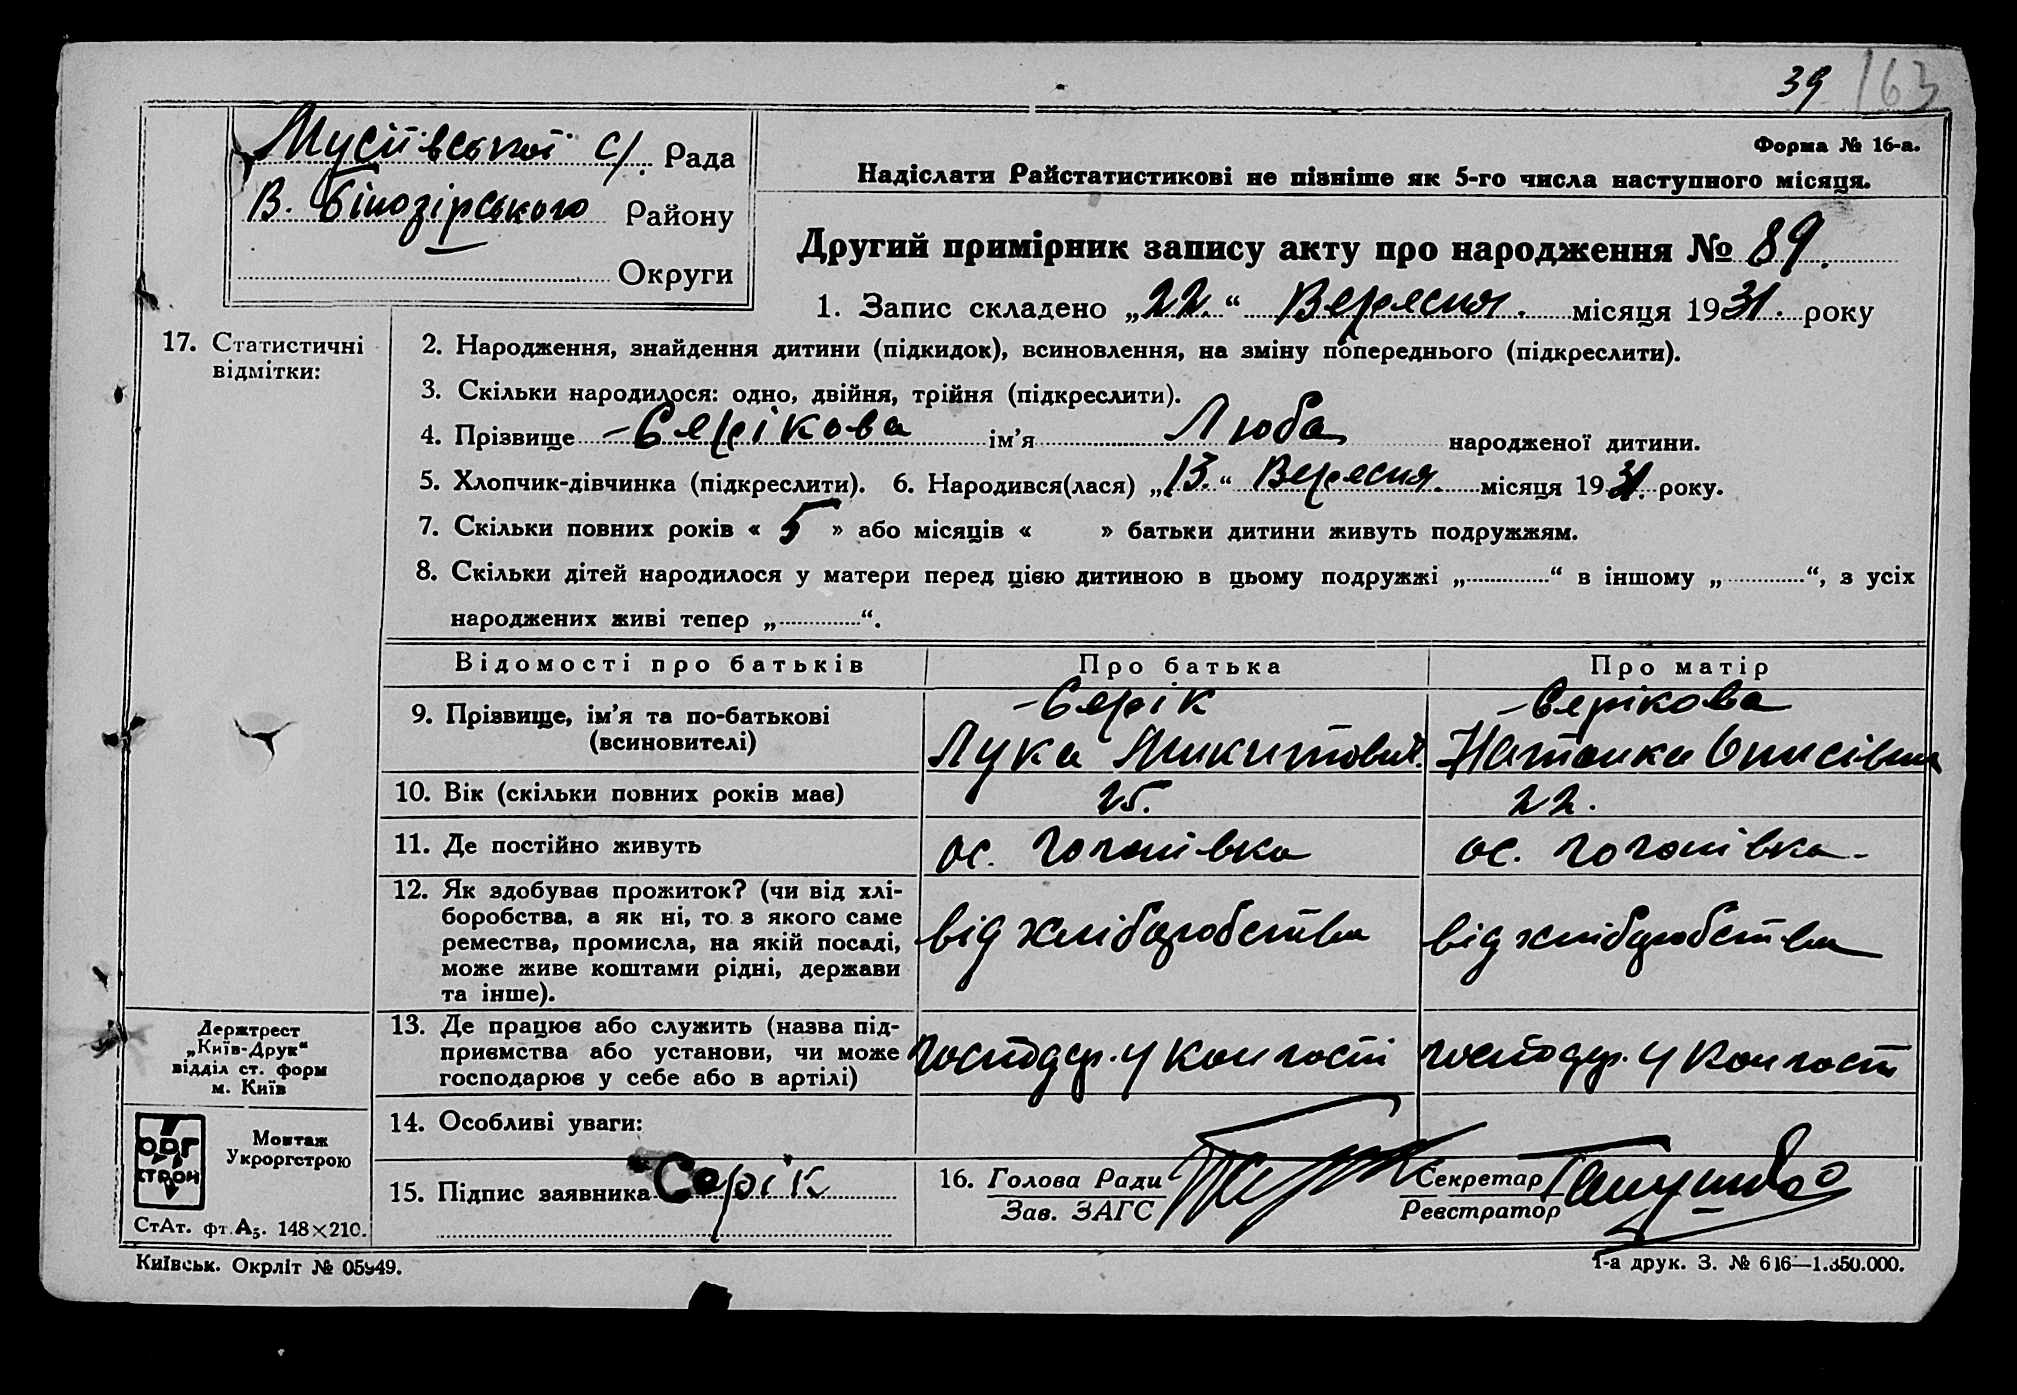 39 163
Мусіївської с/. Рада
В. Білозірського Району
Округи
Форма № 16-а.
Надіслати Райстатистикові не пізніше як 5-го числа наступного місяця.
Другий примірник запису акту про народження № 89.
1. Запис складено „22.“ Вересня. місяця 1931. року
17. Статистичні
відмітки:
2. Народження, знайдення дитини (підкидок), всиновлення, на зміну попереднього (підкреслити).
3. Скільки народилося: одно, двійня, трійня (підкреслити).
4. Прізвище Серікова ім’я Люба народженої дитини.
5. Хлопчик-дівчинка (підкреслити). 6. Народився(лася) „13.“ Вересня. місяця 1931. року.
7. Скільки повних років « 5 » або місяців « » батьки дитини живуть подружжям.
8. Скільки дітей народилося у матери перед цією дитиною в цьому подружжі „ “ в іншому „ “, з усіх
народжених живі тепер „ “.
Відомості про батьків Про батька Про матір
9. Прізвище, ім’я та по-батькові
(всиновителі)
Серік
Лука Микитович.
Серікова
Наталка
10. Вік (скільки повних років має) 25. 22.
11. Де постійно живуть ос. ос.
12. Як здобуває прожиток? (чи від хлі-
боробства, а як ні, то з якого саме
ремества, промисла, на якій посаді,
може живе коштами рідні, держави
та інше).
від хліборобства
від хліборобства
13. Де працює або служить (назва під-
приємства або установи, чи може
господарює у себе або в артілі)
господар. у колгоспі
господар. у колгосп
14. Особливі уваги:
15. Підпис заявника Серік
16. Голова Ради
Зав. ЗАГС
Секретар
Реєстратор
Держтрест
„Київ-Друк“
відділ ст. форм
м. Київ
ОРГ
СТРОМ
Монтаж
Укроргстрою
СтАт. фт. А5. 148×210.
Київськ. Окрліт № 05949.
1-а друк. З. № 616—1.350.000.